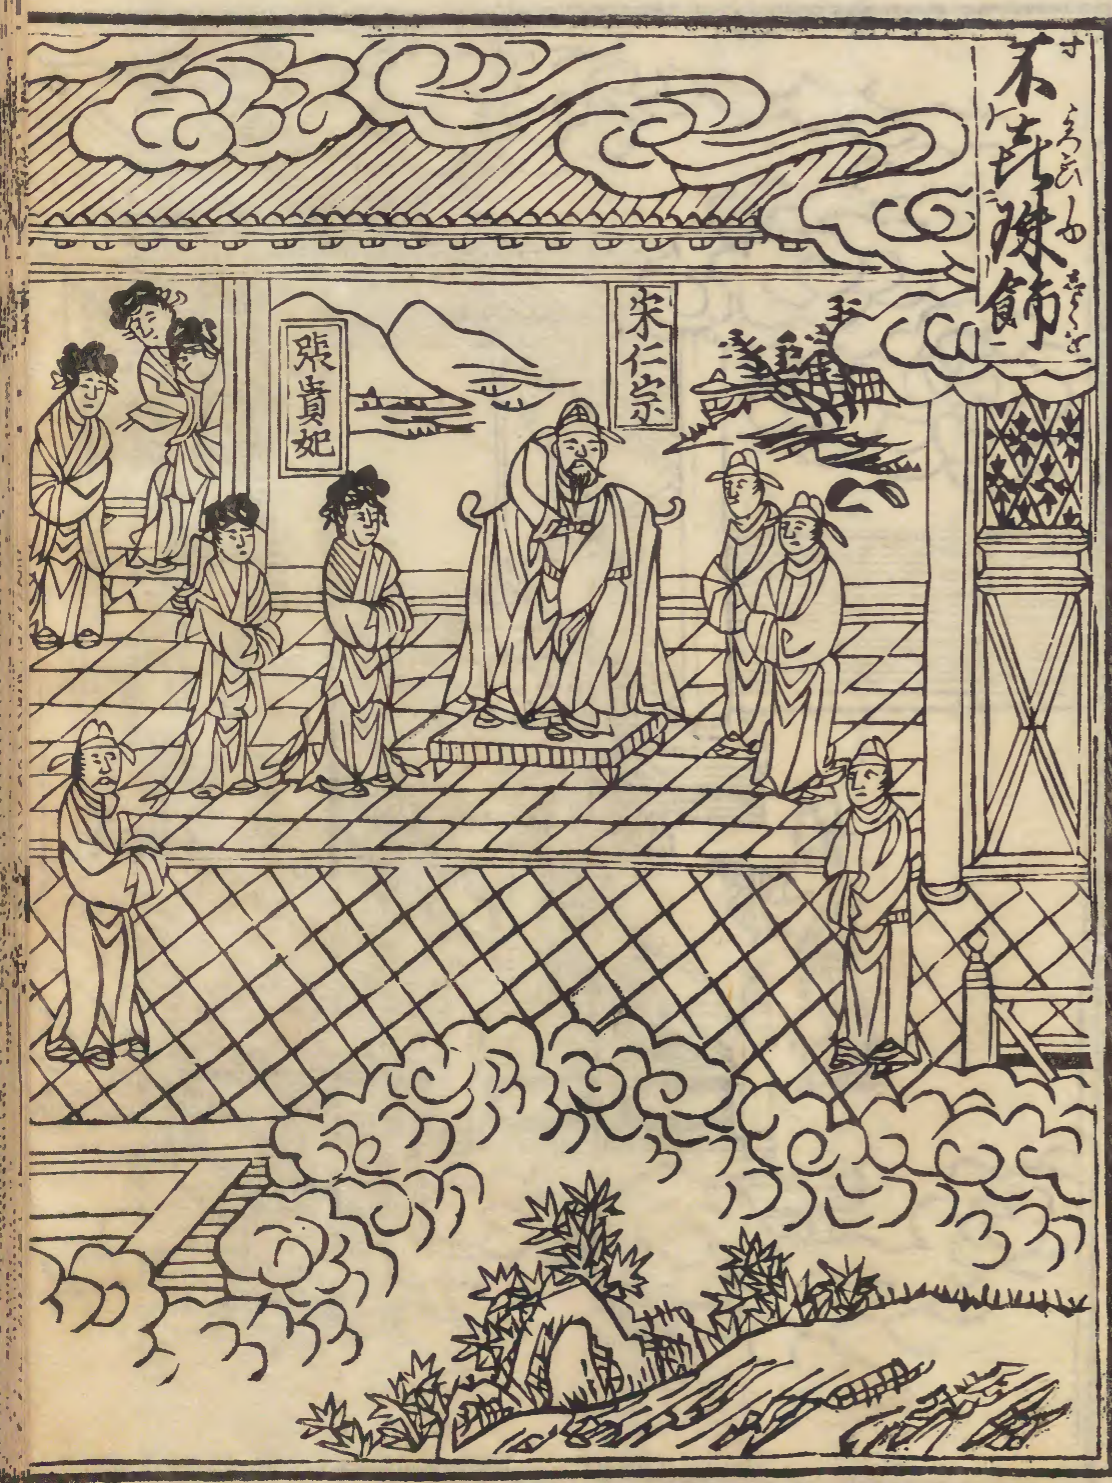 不喜珠飾
宋仁宗
張貴妃